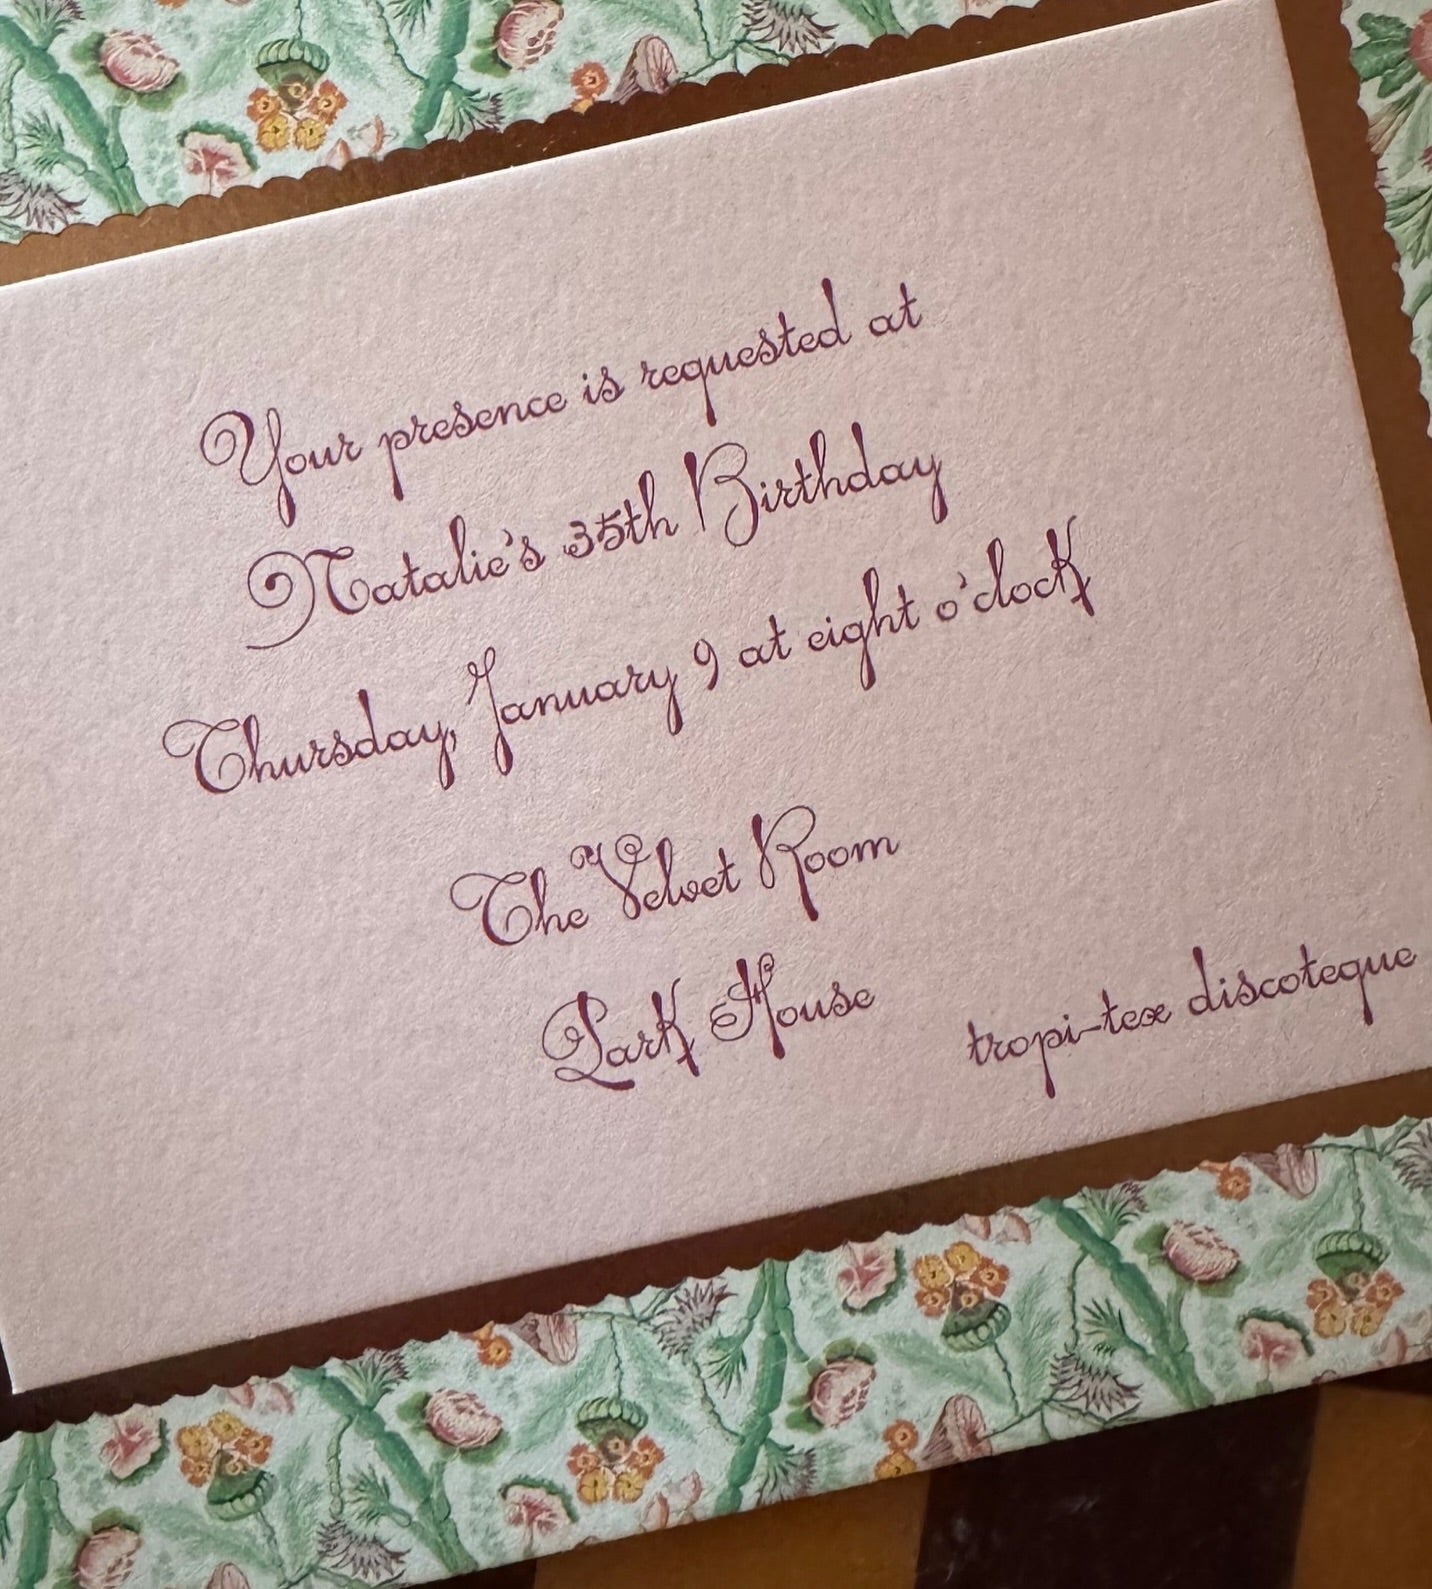 Your presence is requested at
Natalie's 35th Birthday
Thursday, January 9 at eight o'clock
The Velvet Room
Park House
tropi-tex discoteque